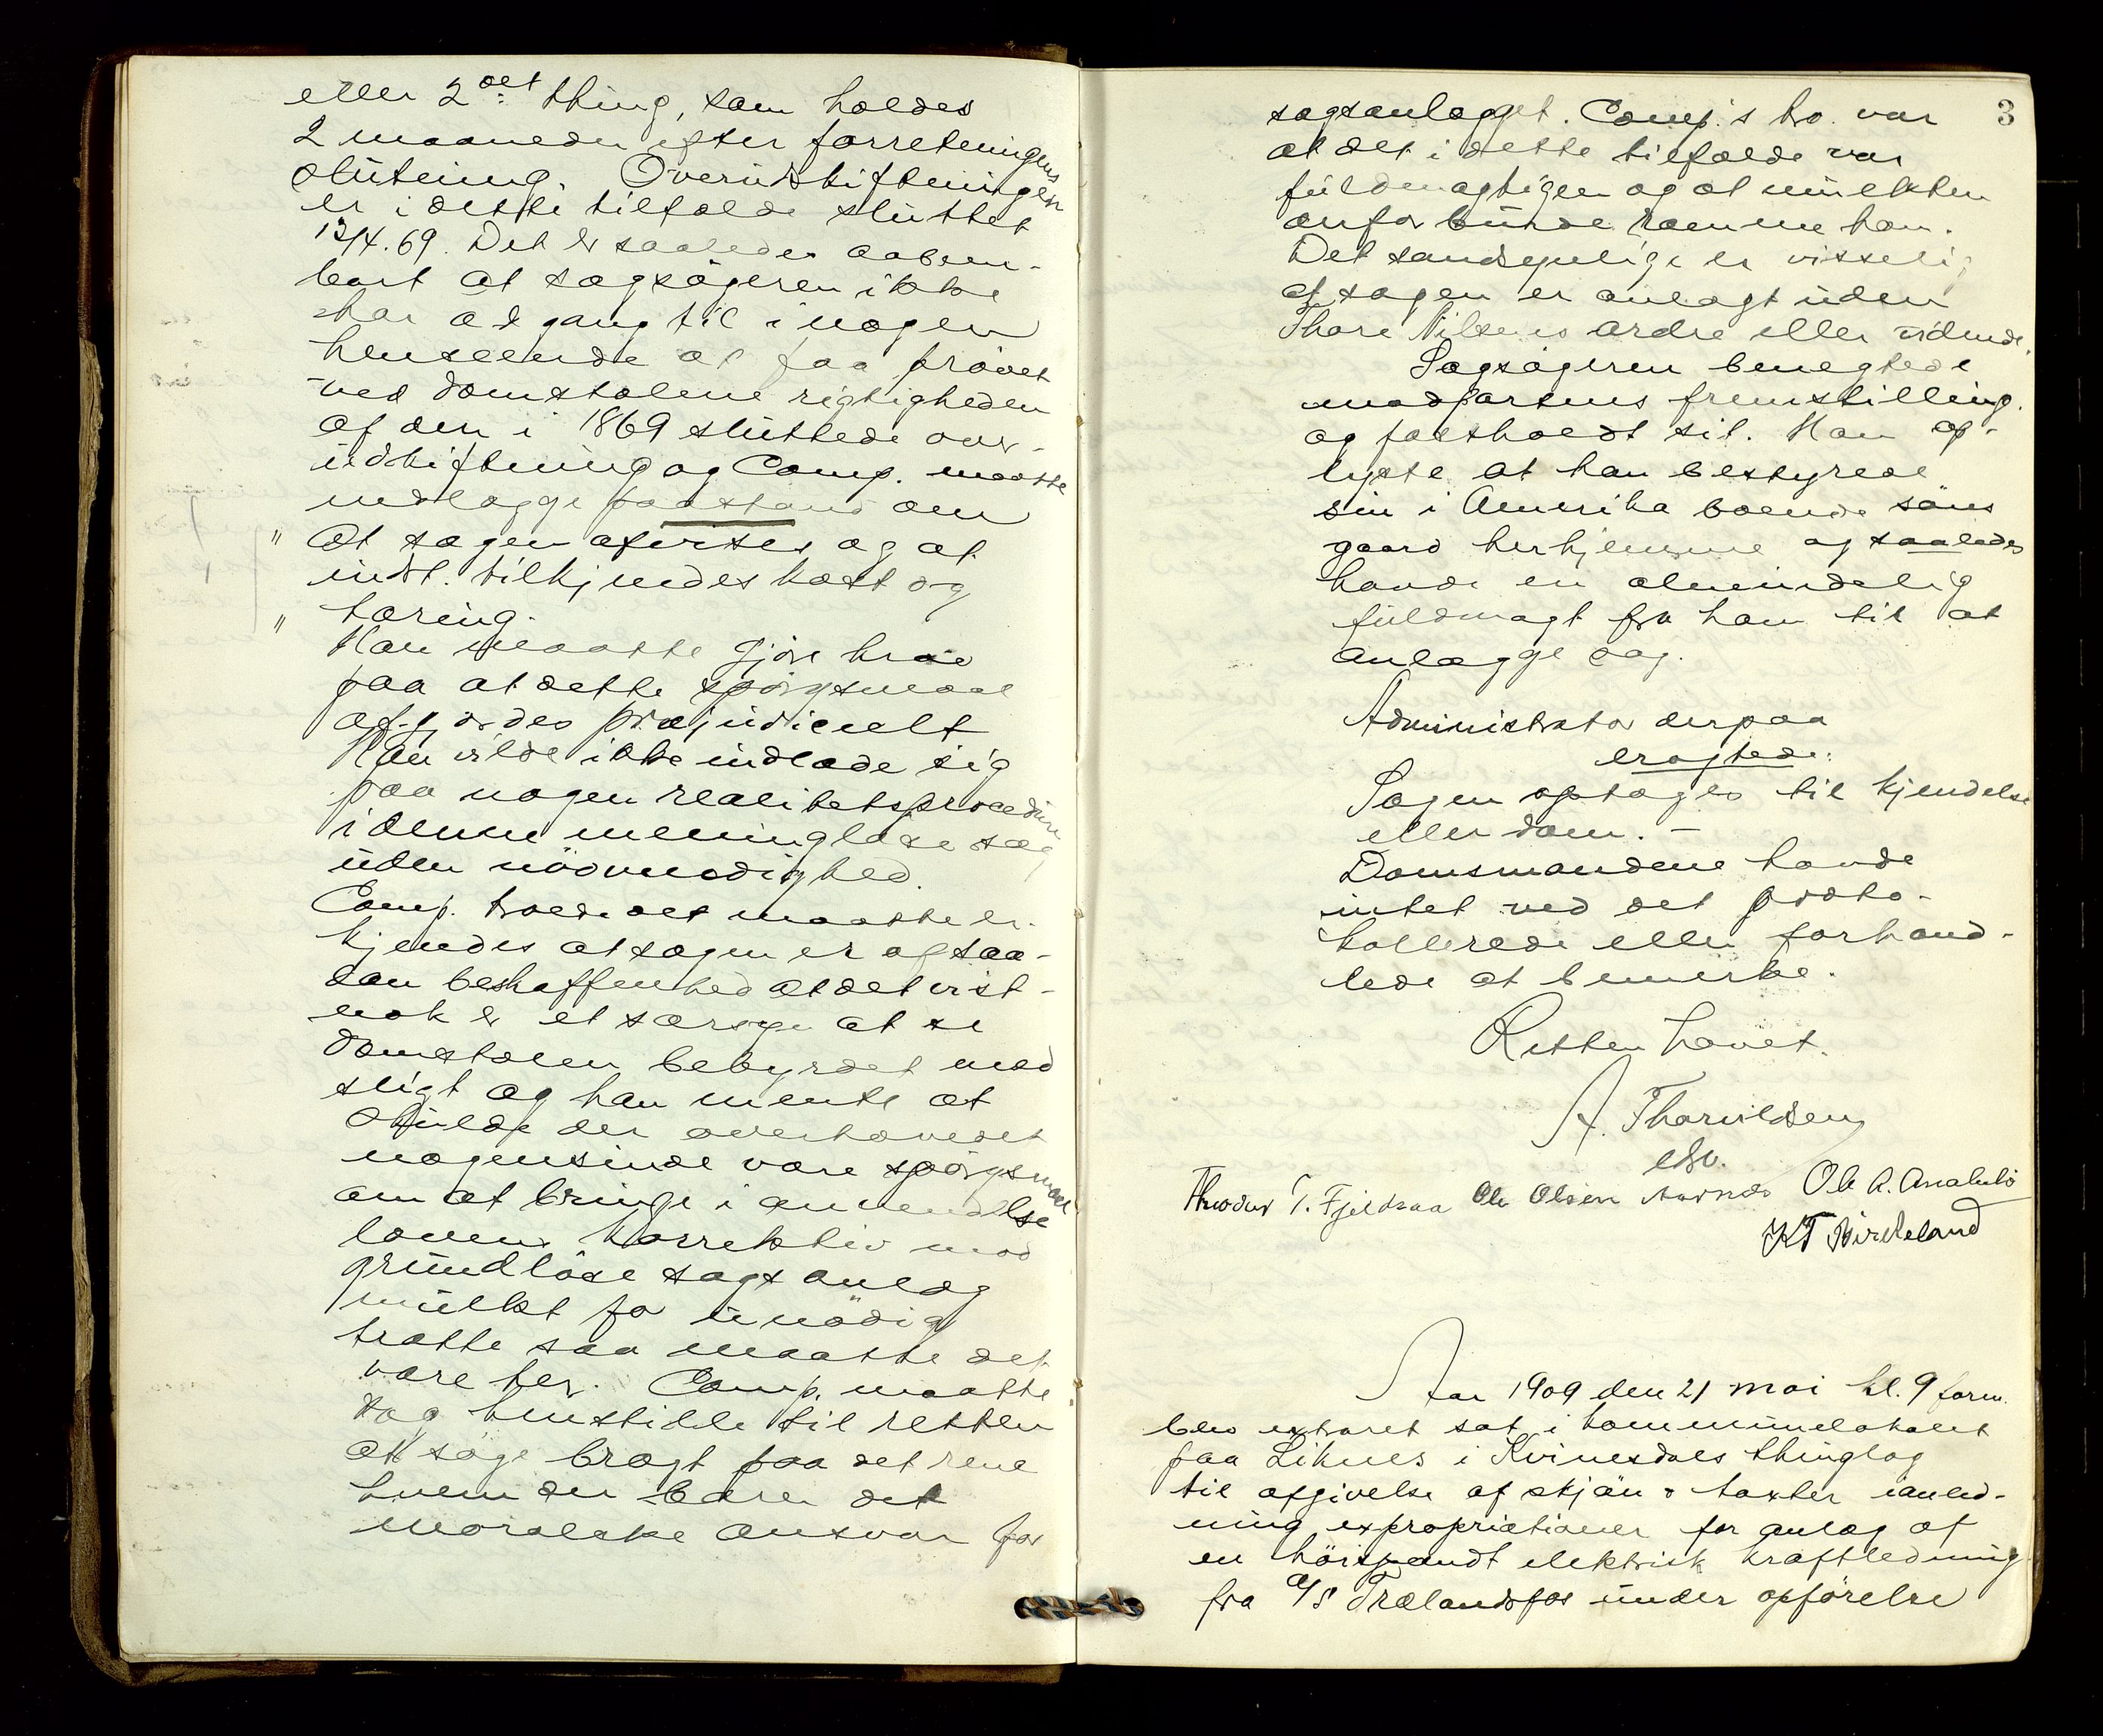 eller 2det thing, som holdes
2 maaneder efter forretningens
slutning. Overudskiftningen
er i dette tilfælde sluttet
13/4.69. Det er saaledes aaben-
bart at sagsøgeren ikke
har adgang til i nogen
henseende at faa prøvet
ved domstolene rigtigheden
af den i 1869 sluttede over-
udskiftning og Comp. maatte
nedlægge paastand om
" At sagen afvises og at
indst. tilkjendes kost og
" tæring.
Han maatte gjøre krav
paa at dette spørgsmaal
afgjordes præjudicielt
Han vilde ikke indlade sig
paa nogen realitetsprocedure
i denne meningløse sag
uden nødvendighed.
Comp. troede det maatte er-
kjendes at sagen er af saa-
dan beskaffenhed at det vist-
nok er et særsyn at se
domstolen bebyrdet med
sligt og han mente at
skulde der overhovedet
nogensinde være spørgsmaal
om at bringe i anvendelse
lovens korrektiv mod
grundløse sagsanlæg
mulkt for unødig
trætte saa maatte det
være her. Comp. maatte
dog henstille til retten
at søge bragt paa det rene
hvem der bærer det
moralske ansvar for
3
sagsanlægget. Comp.'s tro var
at det i dette tilfælde var
fuldmægtigen og at mulkten
anforbunde ramme ham.
Det sandsynlige er visselig
at sagen er anlagt uden
Thore Nilsens ordre eller vidende.
Sagsøgeren benegtede
modpartens fremstilling.
og fastholdt sit. Han op-
lyste at han bestyrede
sin i Amerika boende søns
gaard herhjemme og saaledes
havde en almindelig
fuldmagt fra ham til at
anlægge sag.
Administrator derpaa
eragtede:
Sagen optages til kjendelse
eller dom. –
Domsmændene havde
intet ved det proto-
kollerede eller forhand-
lede at bemerke.
Retten hævet.
A. Thorvildsen
cst.
Theodor T. Fjeldsaa Ole Olsen Aa. A.
KT Birkeland
Aar 1909 den 21 mai kl. 9 form.
blev extraret sat i kommunelokalet
paa Liknes i Kvinesdals thinglag
til afgivelse af skjøn & taxter ianled-
ning expropriationer for anlæg af
en høispændt elektrisk kraftledning
fra A/S Trælandsfos under opførelse